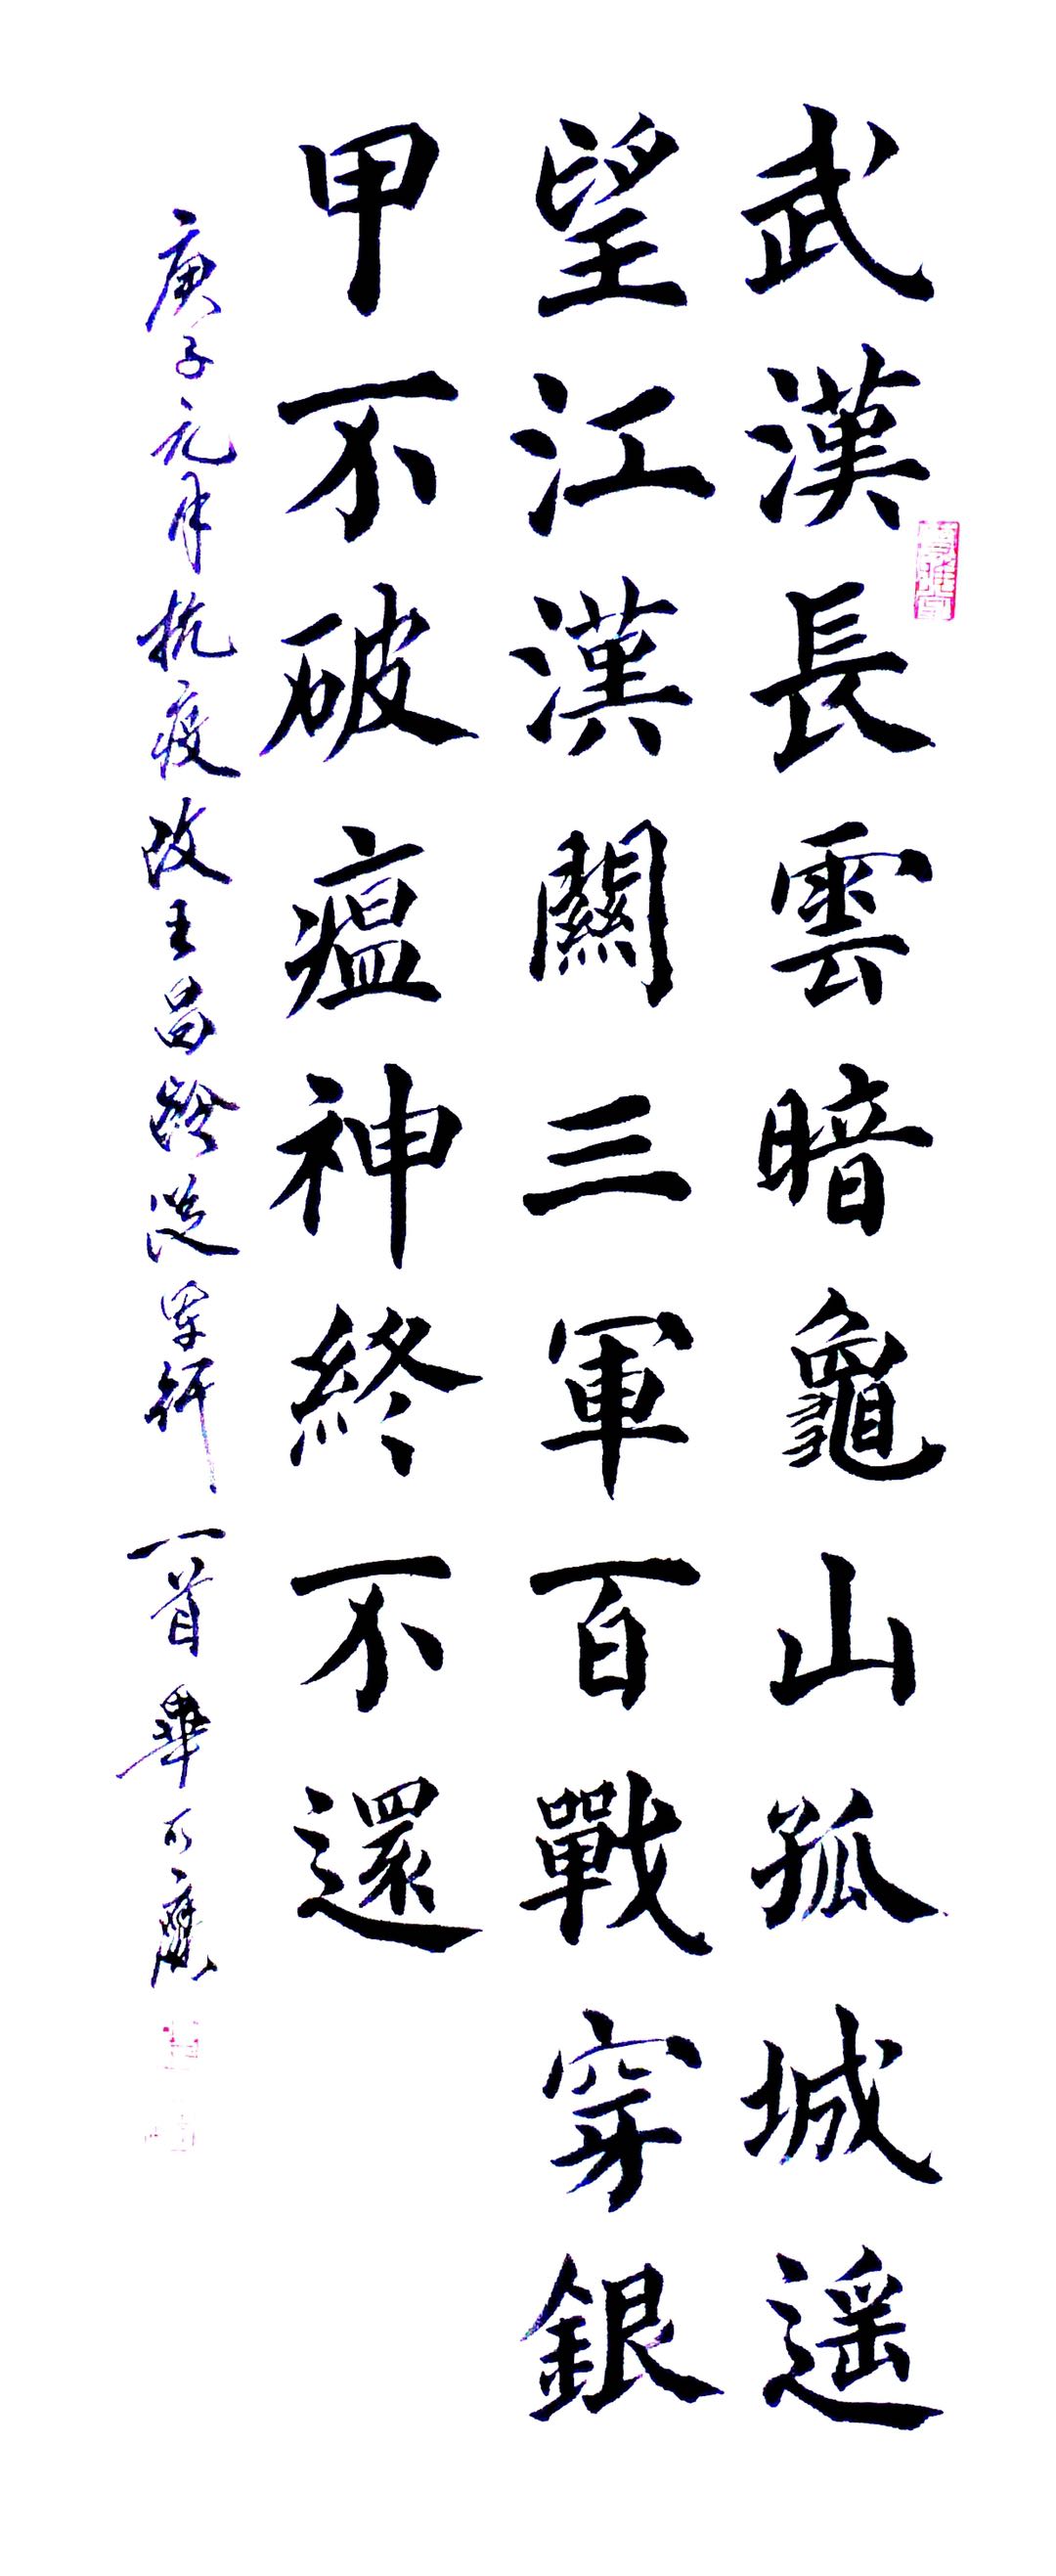 武漢長雲暗龜山孤城遥
望江漢關三軍百戰穿銀
甲不破瘟神終不還
庚子元月抗疫改王昌齡從軍行一首畢可鷹